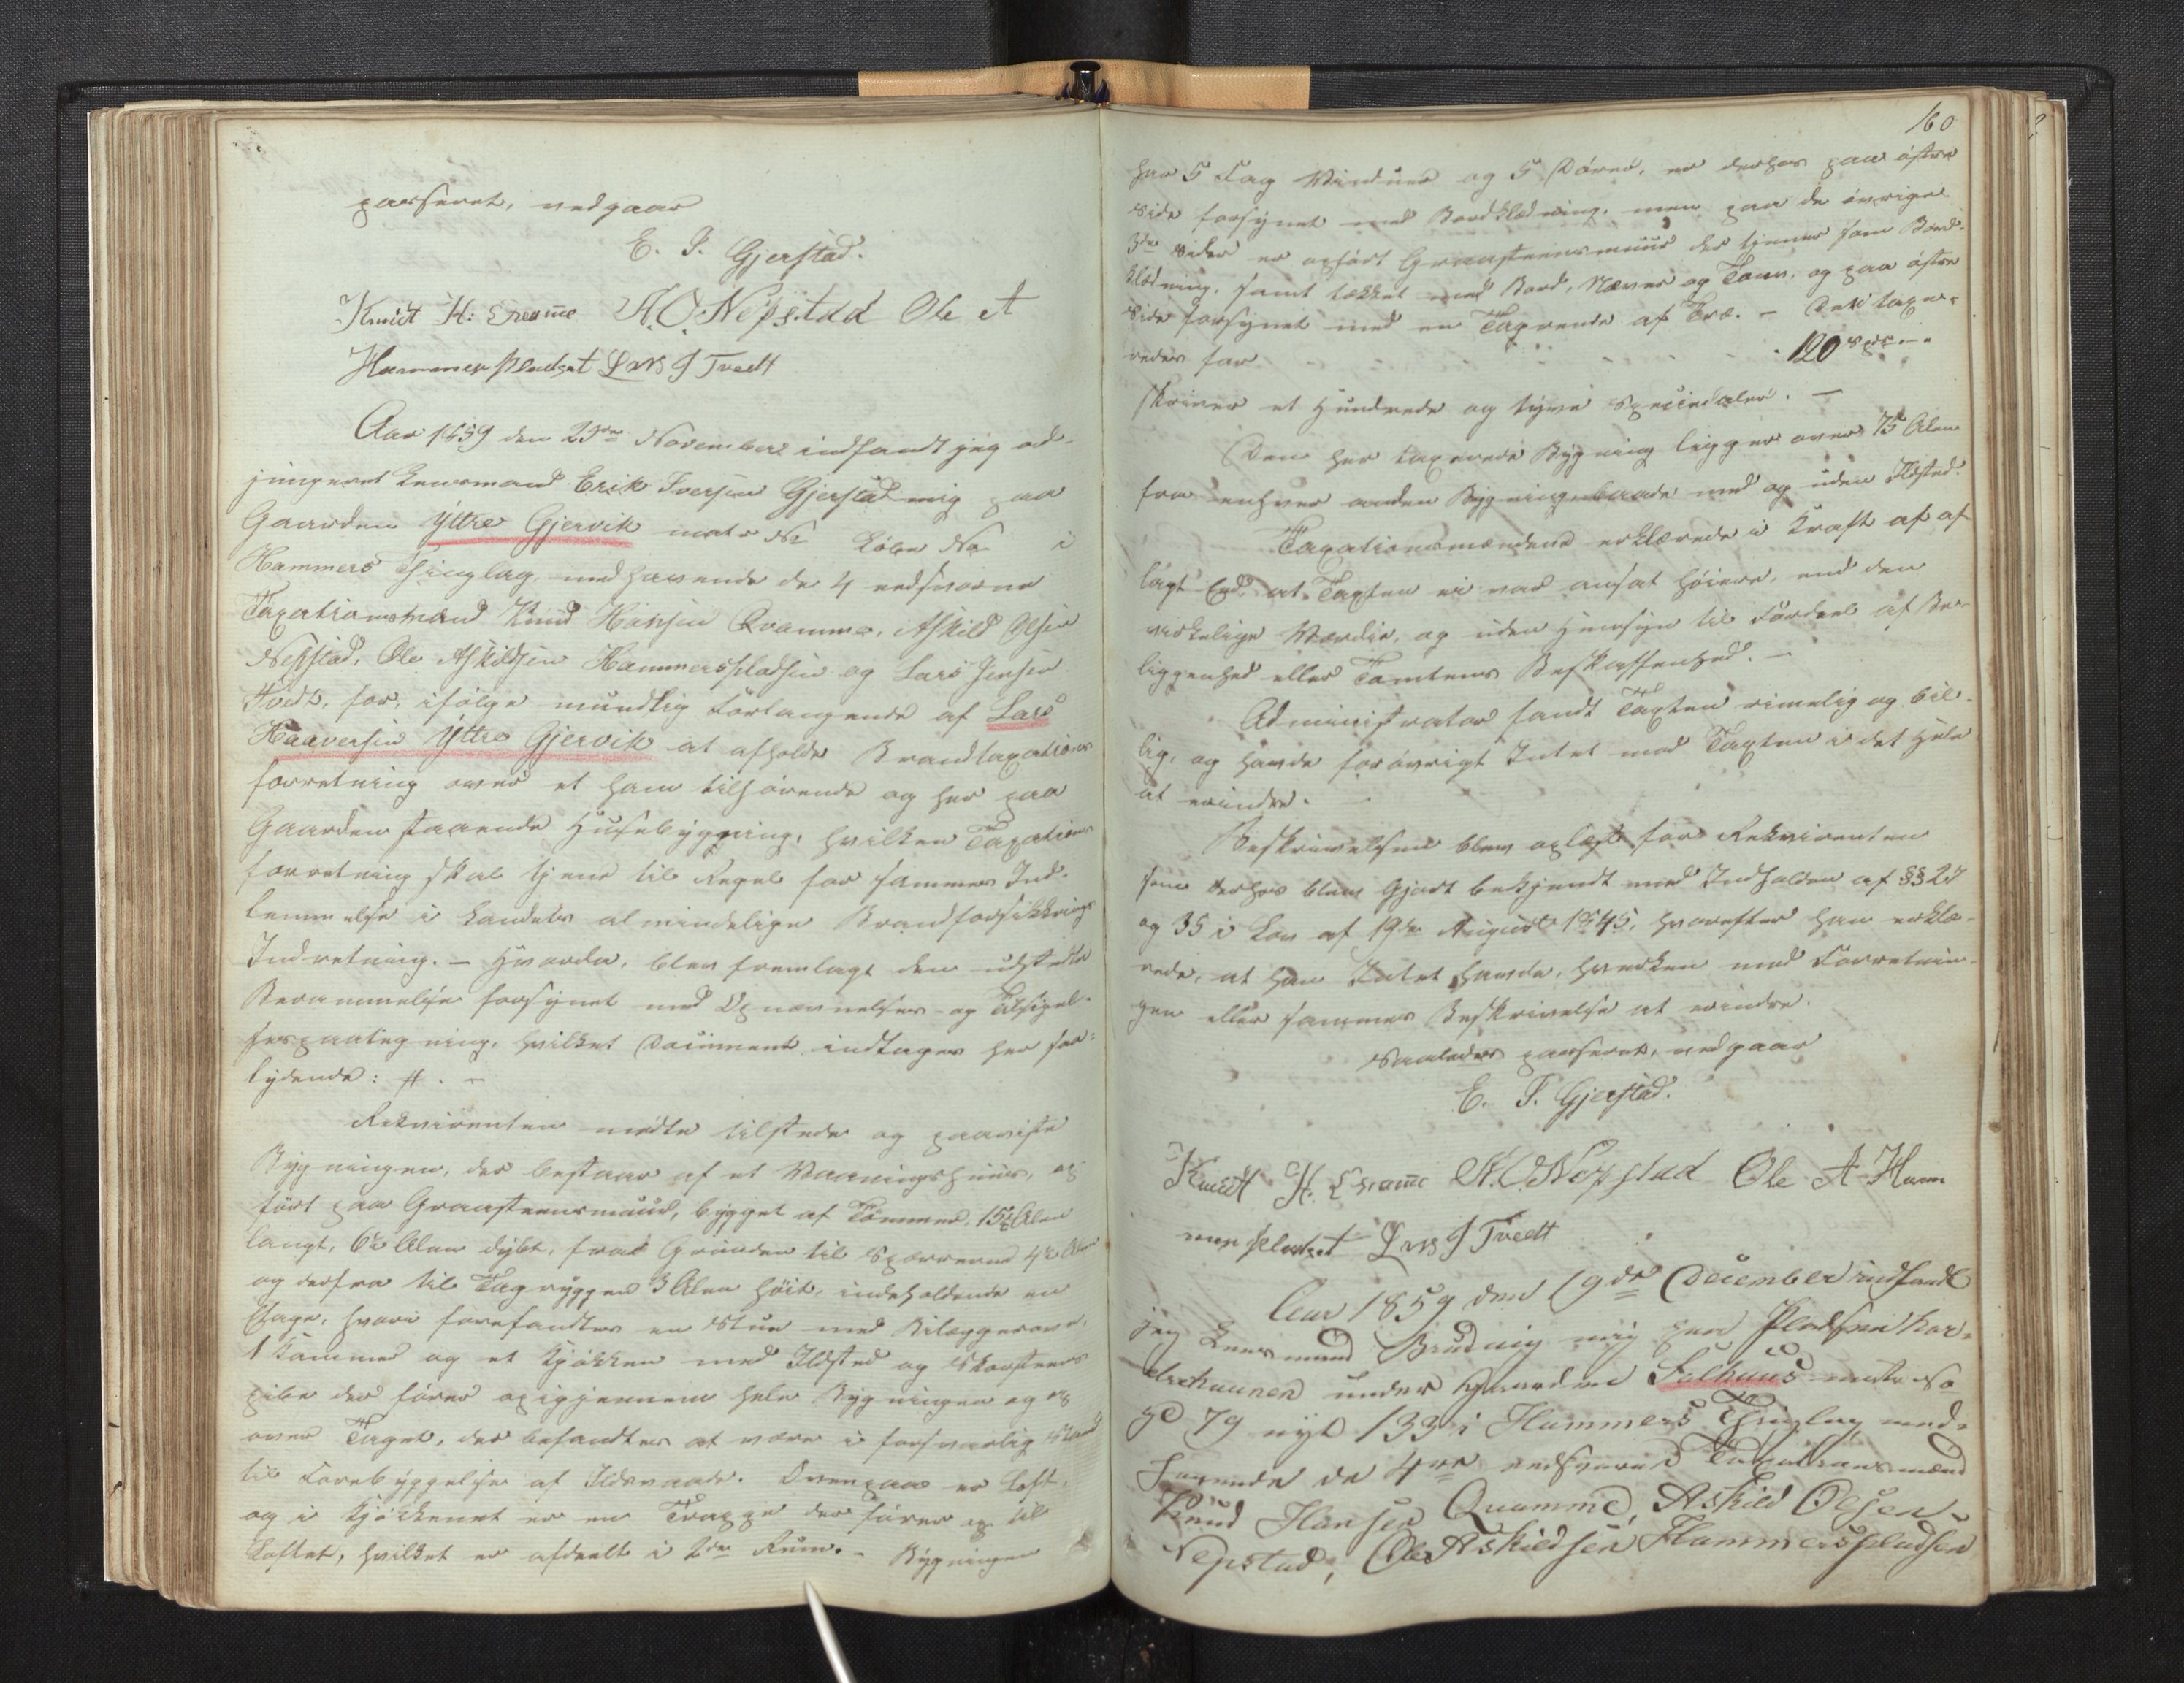 passeret, vedgaar
E. I. Gjerstad.
Knudt H: Qvamme A. O. Nepstad Ole A
Hammerspladset Lars J Tvedt
Aar 1859 den 23de November indfandt jeg ad-
jungeret Lensmand Erik Iversen Gjerstad mig paa
Gaarden Yttre Gjervik matr No Løbe No i
Hammers Thinglag, medhavende de 4 eedsvorne
Taxationsmænd Knud Hansen Qvamme, Askild Olsen
Nepstad, Ole Askildsen Hammerspladsen og Lars Jensen
Tvedt, for, ifølge mundtlig Forlangende af Lars
Haaversen Yttre Gjervik at afholde Brandtaxations
forretning over et ham tilhørende og her paa
Gaarden staaende Husebygning, hvilken Taxations
forretning skal tjene til Regel for sammes Ind-
lemmelse i Landets almindelige Brandforsikkrings
Indretning. – Hvorda, blev fremlagt den udstedte
Berammelse forsynet med Opnævnelses- og Tilsigel-
sespaategning, hvilket Document indtages her saa-
lydende: #. –
Rekvirenten mødte tilstede og paaviste
Bygningen, der bestaar af et Vaaningshuus, op
ført paa Graasteensmuur, bygget af Tømmer, 15½ Alen
langt, 6½ Alen dybt, fra Grunden til Sperrerne 4½ Alen
og derfra til Tagryggen 3 Alen høit, indeholdende en
Etage, hvori forefandtes en Stue med Bilæggerovn,
1 Kammer og et Kjøkken med Ildsted og Skorsteens
pibe der fører opigjennem hele Bygningen og op
over Taget, der befandtes at være i forsvarlig Stand
til Forebyggelse af Ildsvaade. Ovenpaa er Loft,
og i Kjøkkenet er en Trappe der fører op til
Loftet, hvilket er afdeelt i 2de Rum. – Bygningen
160
har 5 Fag Vinduer og 5 Dører, er derhos paa østre
Side forsynet med Bordklædning, men paa de øvrige
3de Sider er opført Graasteensmuur der tjener som Bord-
klædning, samt tækket med Bord, Næver og Torv, og paa østre
Side forsynet med en Tagrende af Træ. – Dette taxe-
redes for . . . . . . 120 Spd –
skriver et Hundrede og tyve Speciedaler. –
Den her taxerede Bygning ligger over 75 Alen
fra enhver anden Bygning baade med og uden Ildsted.
Taxationsmændene erklærede i Kraft af af-
lagt Eed, at Taxten ei var ansat høiere, end den
virkelige Værdie, og uden Hensyn til Fordeel af Be-
liggenhed eller Tomtens Beskaffenhed. –
Administrator fandt Taxten rimelig og bil-
lig, og havde forøvrigt Intet mod Taxten i det Hele
at erindre.
Beskrivelsen blev oplæst for Rekvirenten
som derhos blev gjort bekjendt med Indholden af §§ 27
og 35 i Lov af 19de August 1845, hvorefter han erklæ-
rede, at han Intet havde, hverken mod Forretnin-
gen eller sammes Beskrivelse at erindre.
Saaledes passeret, vedgaar
E. I. Gjerstad.
Knudt H. Qvamme A. O. Nepstad Ole A Ham
merspladset Lars J Tvedt
Aar 1859 den 19de December indfandt
jeg Lensmand Brudvig mig paa Pladsen Kar-
under Gaarden Falhuus matr No
79 nyt 133 i Hammers Thinglag med-
havende de 4re eedsvorne Taxationsmænd
Knud Hansen Quamme, Askild Olsen
Nepstad, Ole Askildsen Hammerspladsen